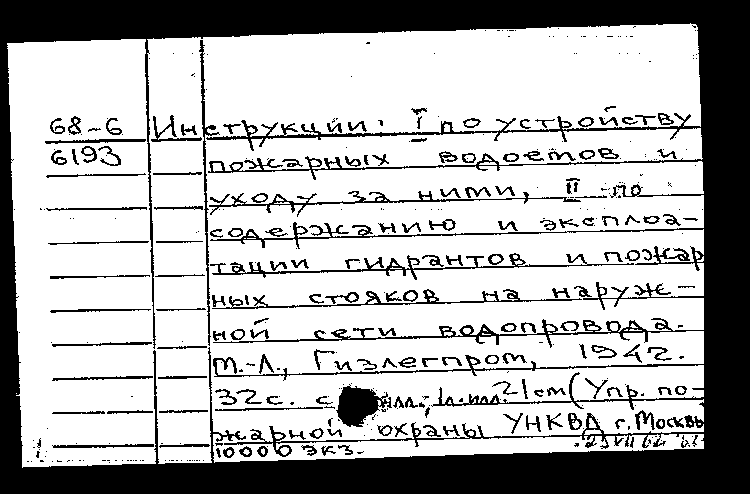 68-6 Инструкции: I по устройству
6193 пожарных водоемов и
уходу за ними, II по
содержанию и эксплоа-
тации гидрантов и пожар
ных стояков на наруж-
ной сети водопровода.
М.-Л., Гизлегпром, 1942.
32с. с илл.; 1л. илл. 21см (Упр. по-
жарной охраны УНКВД г. Москвы
10000 экз.